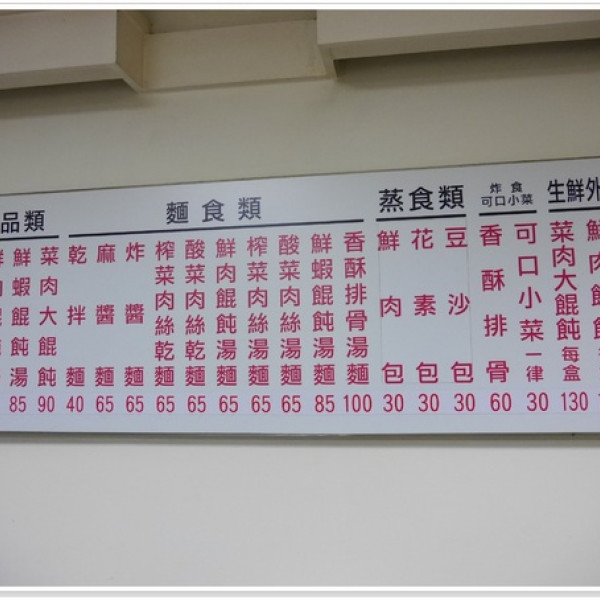 品類
鮮蝦餛飩湯 85
菜肉大餛飩 90
麵食類
乾拌麵 40
麻醬麵 65
炸醬麵 65
榨菜肉絲乾麵 65
酸菜肉絲乾麵 65
鮮肉餛飩湯麵 65
榨菜肉絲湯麵 65
酸菜肉絲湯麵 65
鮮蝦餛飩湯麵 85
香酥排骨湯麵 100
蒸食類
鮮肉包 30
花素包 30
豆沙包 30
炸食
可口小菜
香酥排骨 60
可口小菜一律 30
生鮮外
菜肉大餛飩每盒 130
鮮肉餛飩